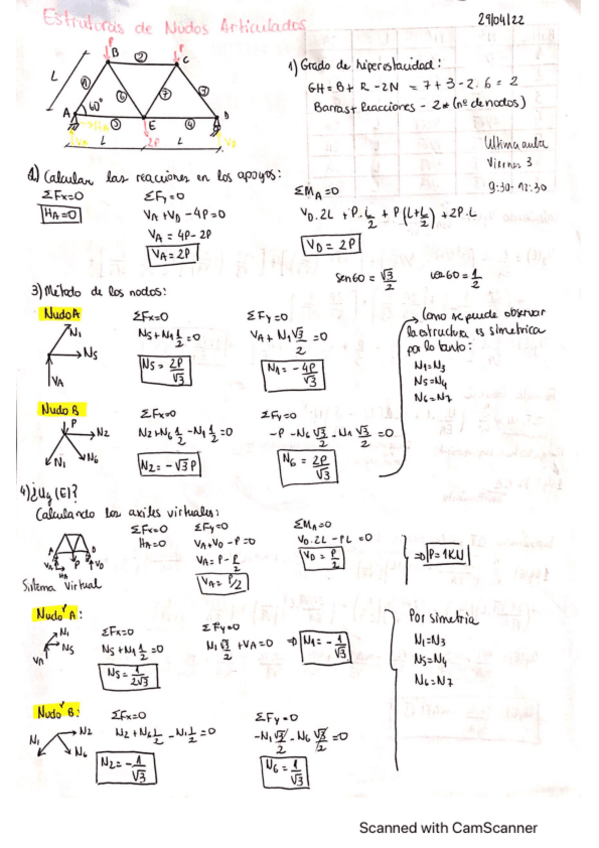 Estruturas de Nudos Articulados
29/04/22
P
P
B
②
C
L
①
⑥
⑦
③
A
60°
⑤
E
④
D
HA
VA
L
2P
L
VD
1) Grado de hiperestacidad:
GH = B + R - 2N = 7 + 3 - 2·6 = 2
Barras + Reacciones - 2* (nº de nodos)
Ultima aula
Viernes 3
9:30 - 12:30
2) Calcular las reacciones en los apoyos:
ΣFx=0
HA=0
ΣFy=0
VA + VD - 4P = 0
VA = 4P - 2P
VA = 2P
ΣMA=0
VD·2L + P·L/2 + P(L+L/2) + 2P·L
VD = 2P
sen60 = √3/2
cos60 = 1/2
3) Método de los nodos:
Nudo A
N1
N5
VA
ΣFx=0
N5 + N1 1/2 = 0
N5 = 2P/√3
ΣFy=0
VA + N1 √3/2 = 0
N1 = - 4P/√3
Como se puede observar
la estructura es simetrica
por lo tanto:
N1=N3
N5=N4
N6=N7
Nudo B
P
N2
N1
N6
ΣFx=0
N2 + N6 1/2 - N1 1/2 = 0
N2 = - √3 P
ΣFy=0
-P - N6 √3/2 - N1 √3/2 = 0
N6 = 2P/√3
4) ¿Uy (E)?
Calculando los axiles virtuales:
A
D
VA
HA
P
VD
Sistema virtual
ΣFx=0
HA=0
ΣFy=0
VA + VD - P = 0
VA = P - P/2
VA = P/2
ΣMA=0
VD·2L - PL = 0
VD = P/2
⇒ P = 1KN
Nudo A:
N1
N5
VA
ΣFx=0
N5 + N1 1/2 = 0
N5 = 1/2√3
ΣFy=0
N1 √3/2 + VA = 0 ⇒ N1 = - 1/√3
Por simetria
N1=N3
N5=N4
N6=N7
Nudo B:
N2
N1
N6
ΣFx=0
N2 + N6 1/2 - N1 1/2 = 0
N2 = - 1/√3
ΣFy=0
-N1 √3/2 - N6 √3/2 = 0
N6 = 1/√3
Scanned with CamScanner